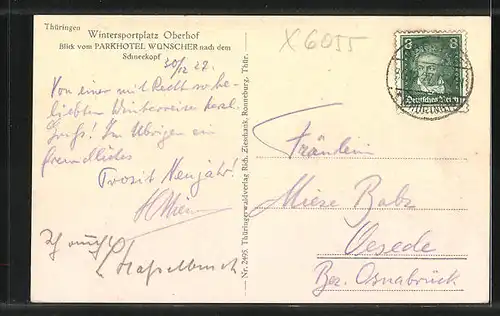 Thüringen
Wintersportplatz Oberhof
Blick vom PARKHOTEL WÜNSCHER nach dem
Schneekopf
30/12 27.
Von einer mit Recht so be-
liebten Winterreise herzl.
Gruß! Im Übrigen ein
freundliches
Prosit Neujahr!
Ich auch!
Nr. 2495. Thüringerwaldverlag Rich. Zieschank, Ronneburg, Thür.
X6055
8 8
Deutsches Reich
Fräulein
Miese Babz
Oesede
Bez. Osnabrück